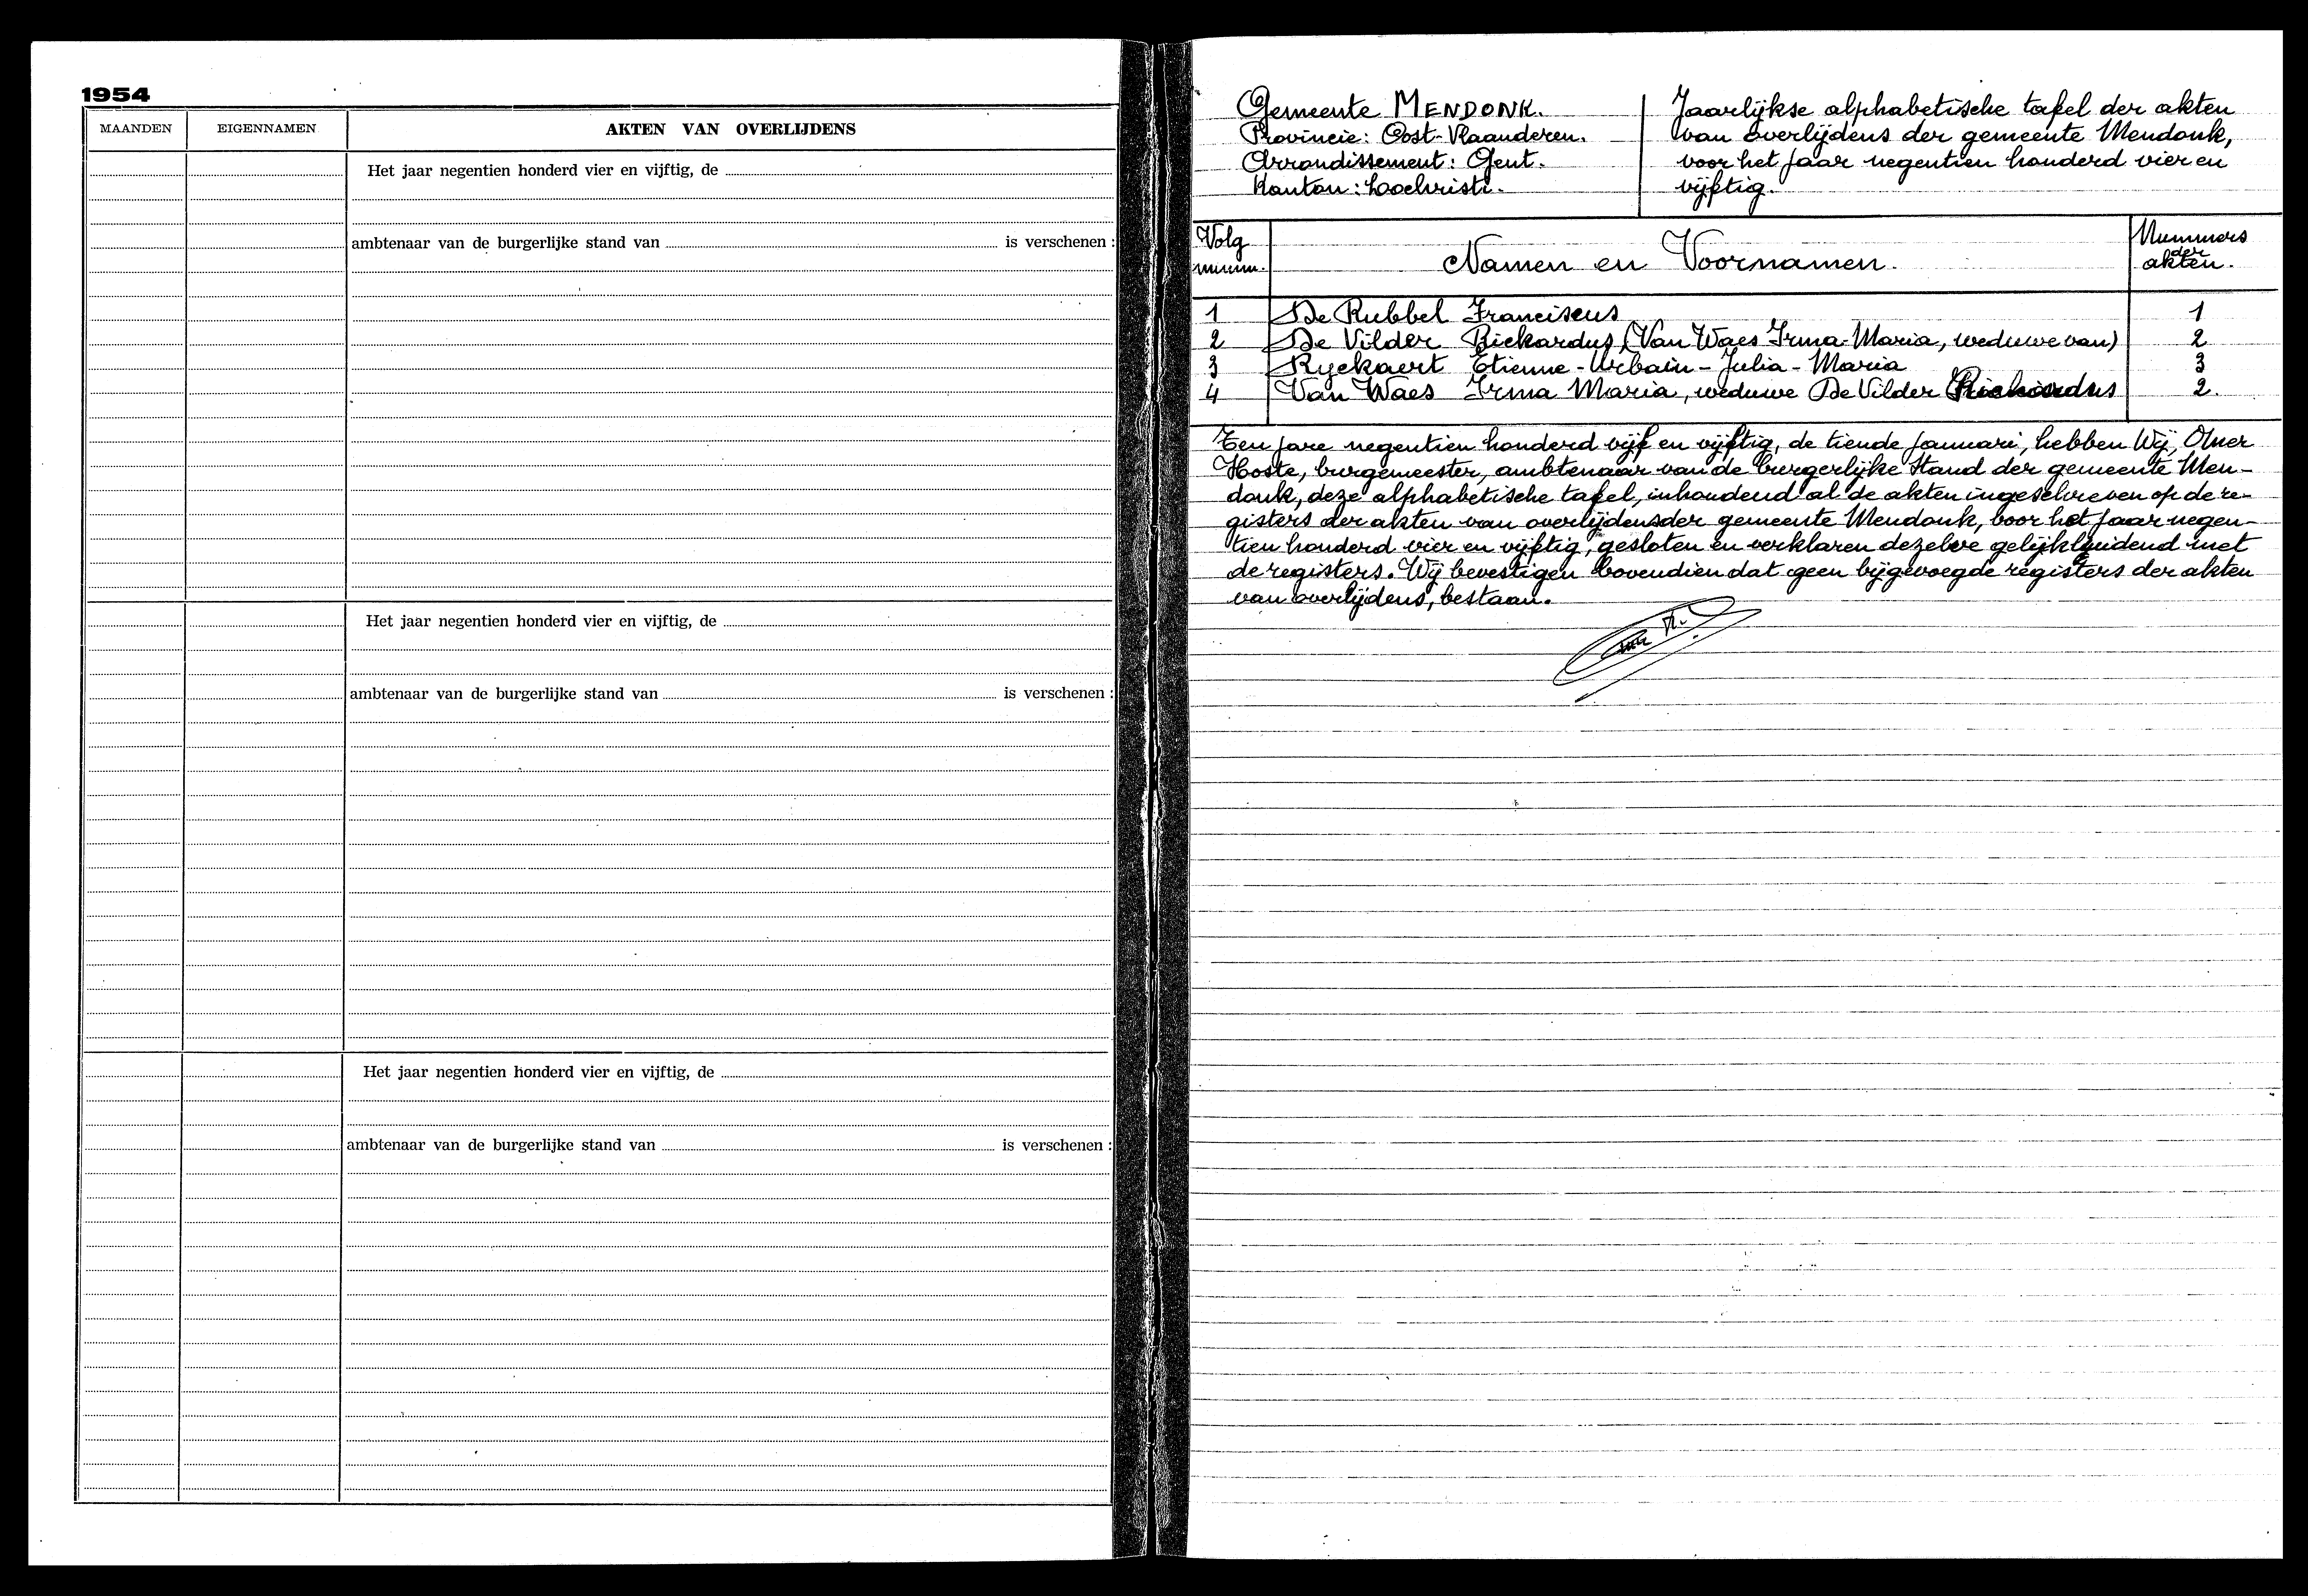 1954
MAANDEN
EIGENNAMEN
AKTEN VAN OVERLIJDENS
Het jaar negentien honderd vier en vijftig, de
ambtenaar van de burgerlijke stand van is verschenen :
Het jaar negentien honderd vier en vijftig, de
ambtenaar van de burgerlijke stand van is verschenen :
Het jaar negentien honderd vier en vijftig, de
ambtenaar van de burgerlijke stand van is verschenen :
Gemeente MENDONK.
Provincie: Oost-Vlaanderen.
Arrondissement: Gent.
Kanton: Lochristi.
Jaarlijkse alphabetische tafel der akten
van overlijdens der gemeente Mendonk,
voor het jaar negentien honderd vier en
vijftig.
Volg
numm.
Namen en Voornamen.
Nummers
der
akten.
1 De Rubbel Franciscus 1
2 De Vilder Rickardus (Van Waes Irma-Maria, weduwe van) 2
3 Ryckaert Etienne-Urbain-Julia-Maria 3
4 Van Waes Irma Maria, weduwe De Vilder Richardus 2.
Ten jare negentien honderd vijf en vijftig, de tiende Januari, hebben Wij, Omer
Hoste, burgemeester, ambtenaar van de burgerlijke stand der gemeente Men-
donk, deze alphabetische tafel, inhoudend al de akten ingeschreven op de re-
gisters der akten van overlijdens der gemeente Mendonk, voor het jaar negen-
tien honderd vier en vijftig, gesloten en verklaren dezelve gelijkluidend met
de registers. Wij bevestigen bovendien dat geen bijgevoegde registers der akten
van overlijdens, bestaan.